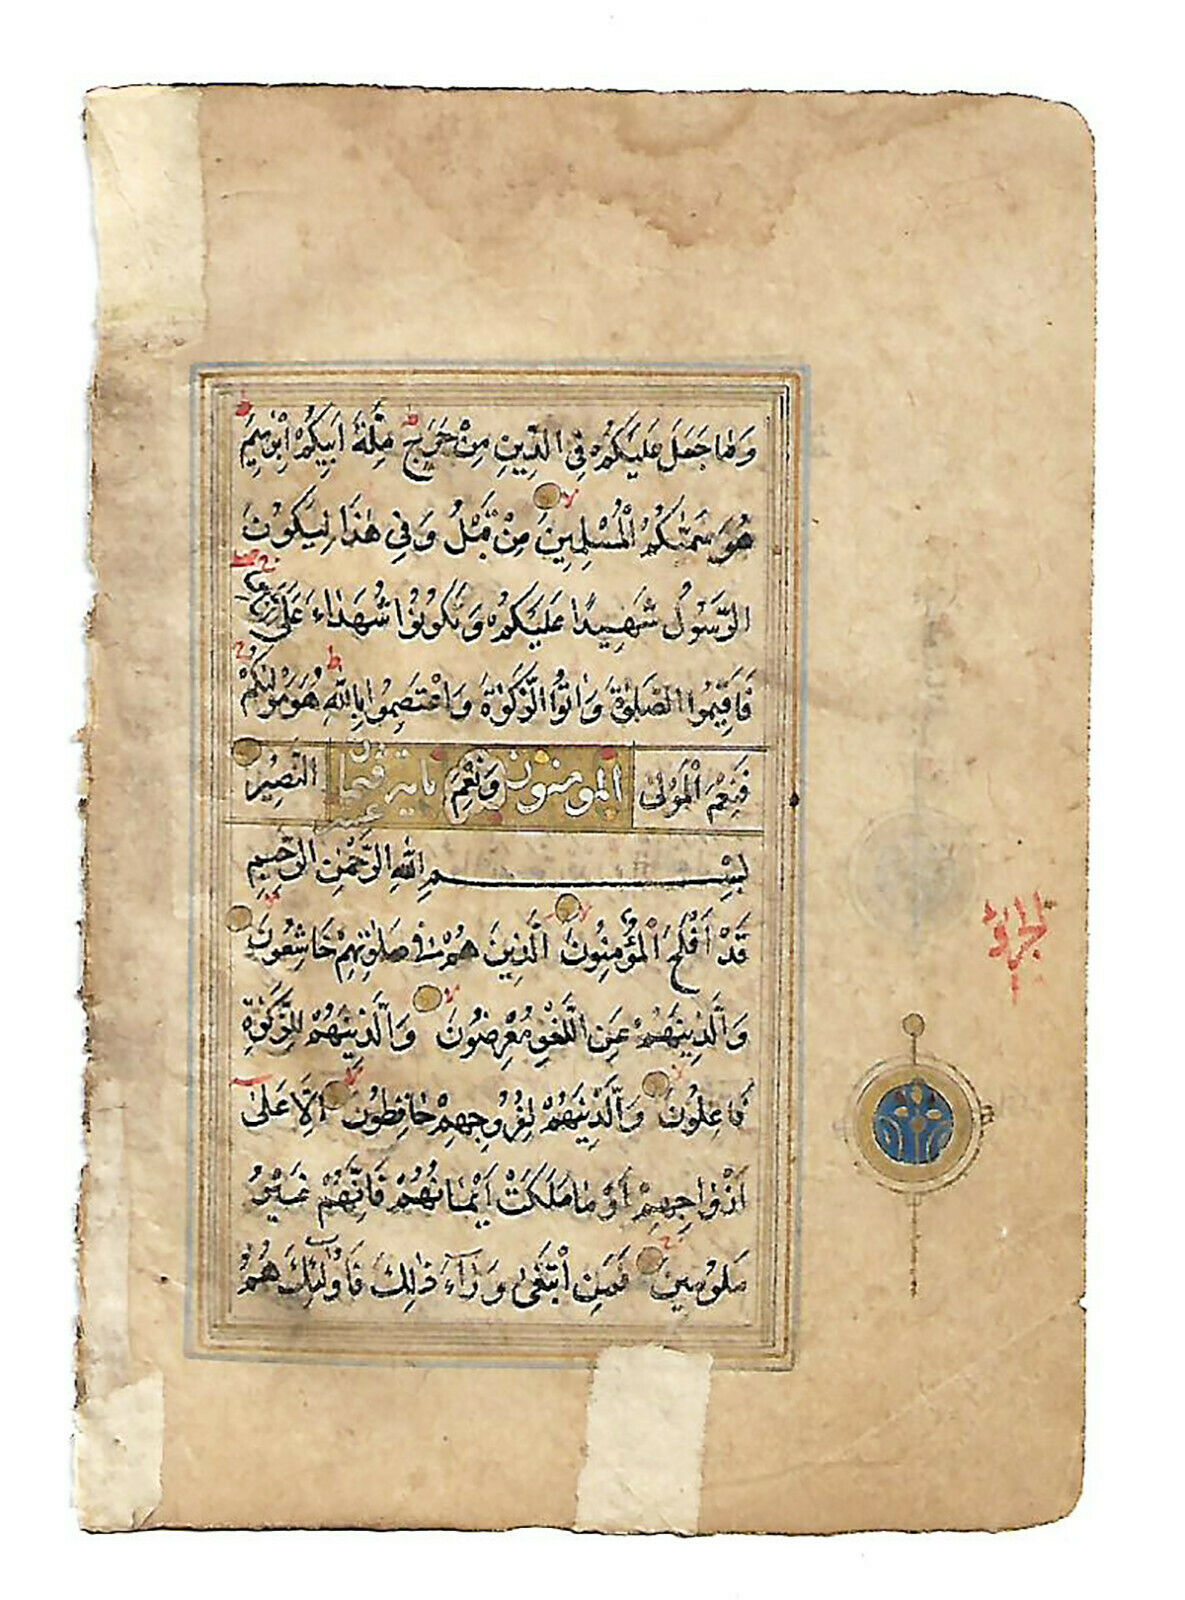 وَمَا جَعَلَ عَلَيْكُمْ فِي الدِّينِ مِنْ حَرَجٍ ط مِلَّةَ اَبِيكُمْ اِبْرٰهِيمَ ط
هُوَ سَمّٰىكُمُ الْمُسْلِمِينَ لا مِنْ قَبْلُ وَفِي هٰذَا لِيَكُونَ
الرَّسُولُ شَهِيدًا عَلَيْكُمْ وَتَكُونُوا شُهَدَاءَ عَلَى
فَاَقِيمُوا الصَّلٰوةَ وَاٰتُوا الزَّكٰوةَ وَاعْتَصِمُوا بِاللّٰهِ ط هُوَ مَوْلٰيكُمْ ج
فَنِعْمَ الْمَوْلٰى وَنِعْمَ النَّصِيرُ
المومنون
بِسْمِ اللّٰهِ الرَّحْمٰنِ الرَّحِيمِ
قَدْ اَفْلَحَ الْمُؤْمِنُونَ لا الَّذِينَ هُمْ فِي صَلَاتِهِمْ خَاشِعُونَ لا
وَالَّذِينَ هُمْ عَنِ اللَّغْوِ مُعْرِضُونَ لا وَالَّذِينَ هُمْ لِلزَّكٰوةِ
فَاعِلُونَ لا وَالَّذِينَ هُمْ لِفُرُوجِهِمْ حَافِظُونَ لا اِلَّا عَلٰى
اَزْوَاجِهِمْ اَوْ مَا مَلَكَتْ اَيْمَانُهُمْ فَاِنَّهُمْ غَيْرُ
مَلُومِينَ ج فَمَنِ ابْتَغٰى وَرَاءَ ذٰلِكَ فَاُولٰئِكَ هُمُ
الجزو